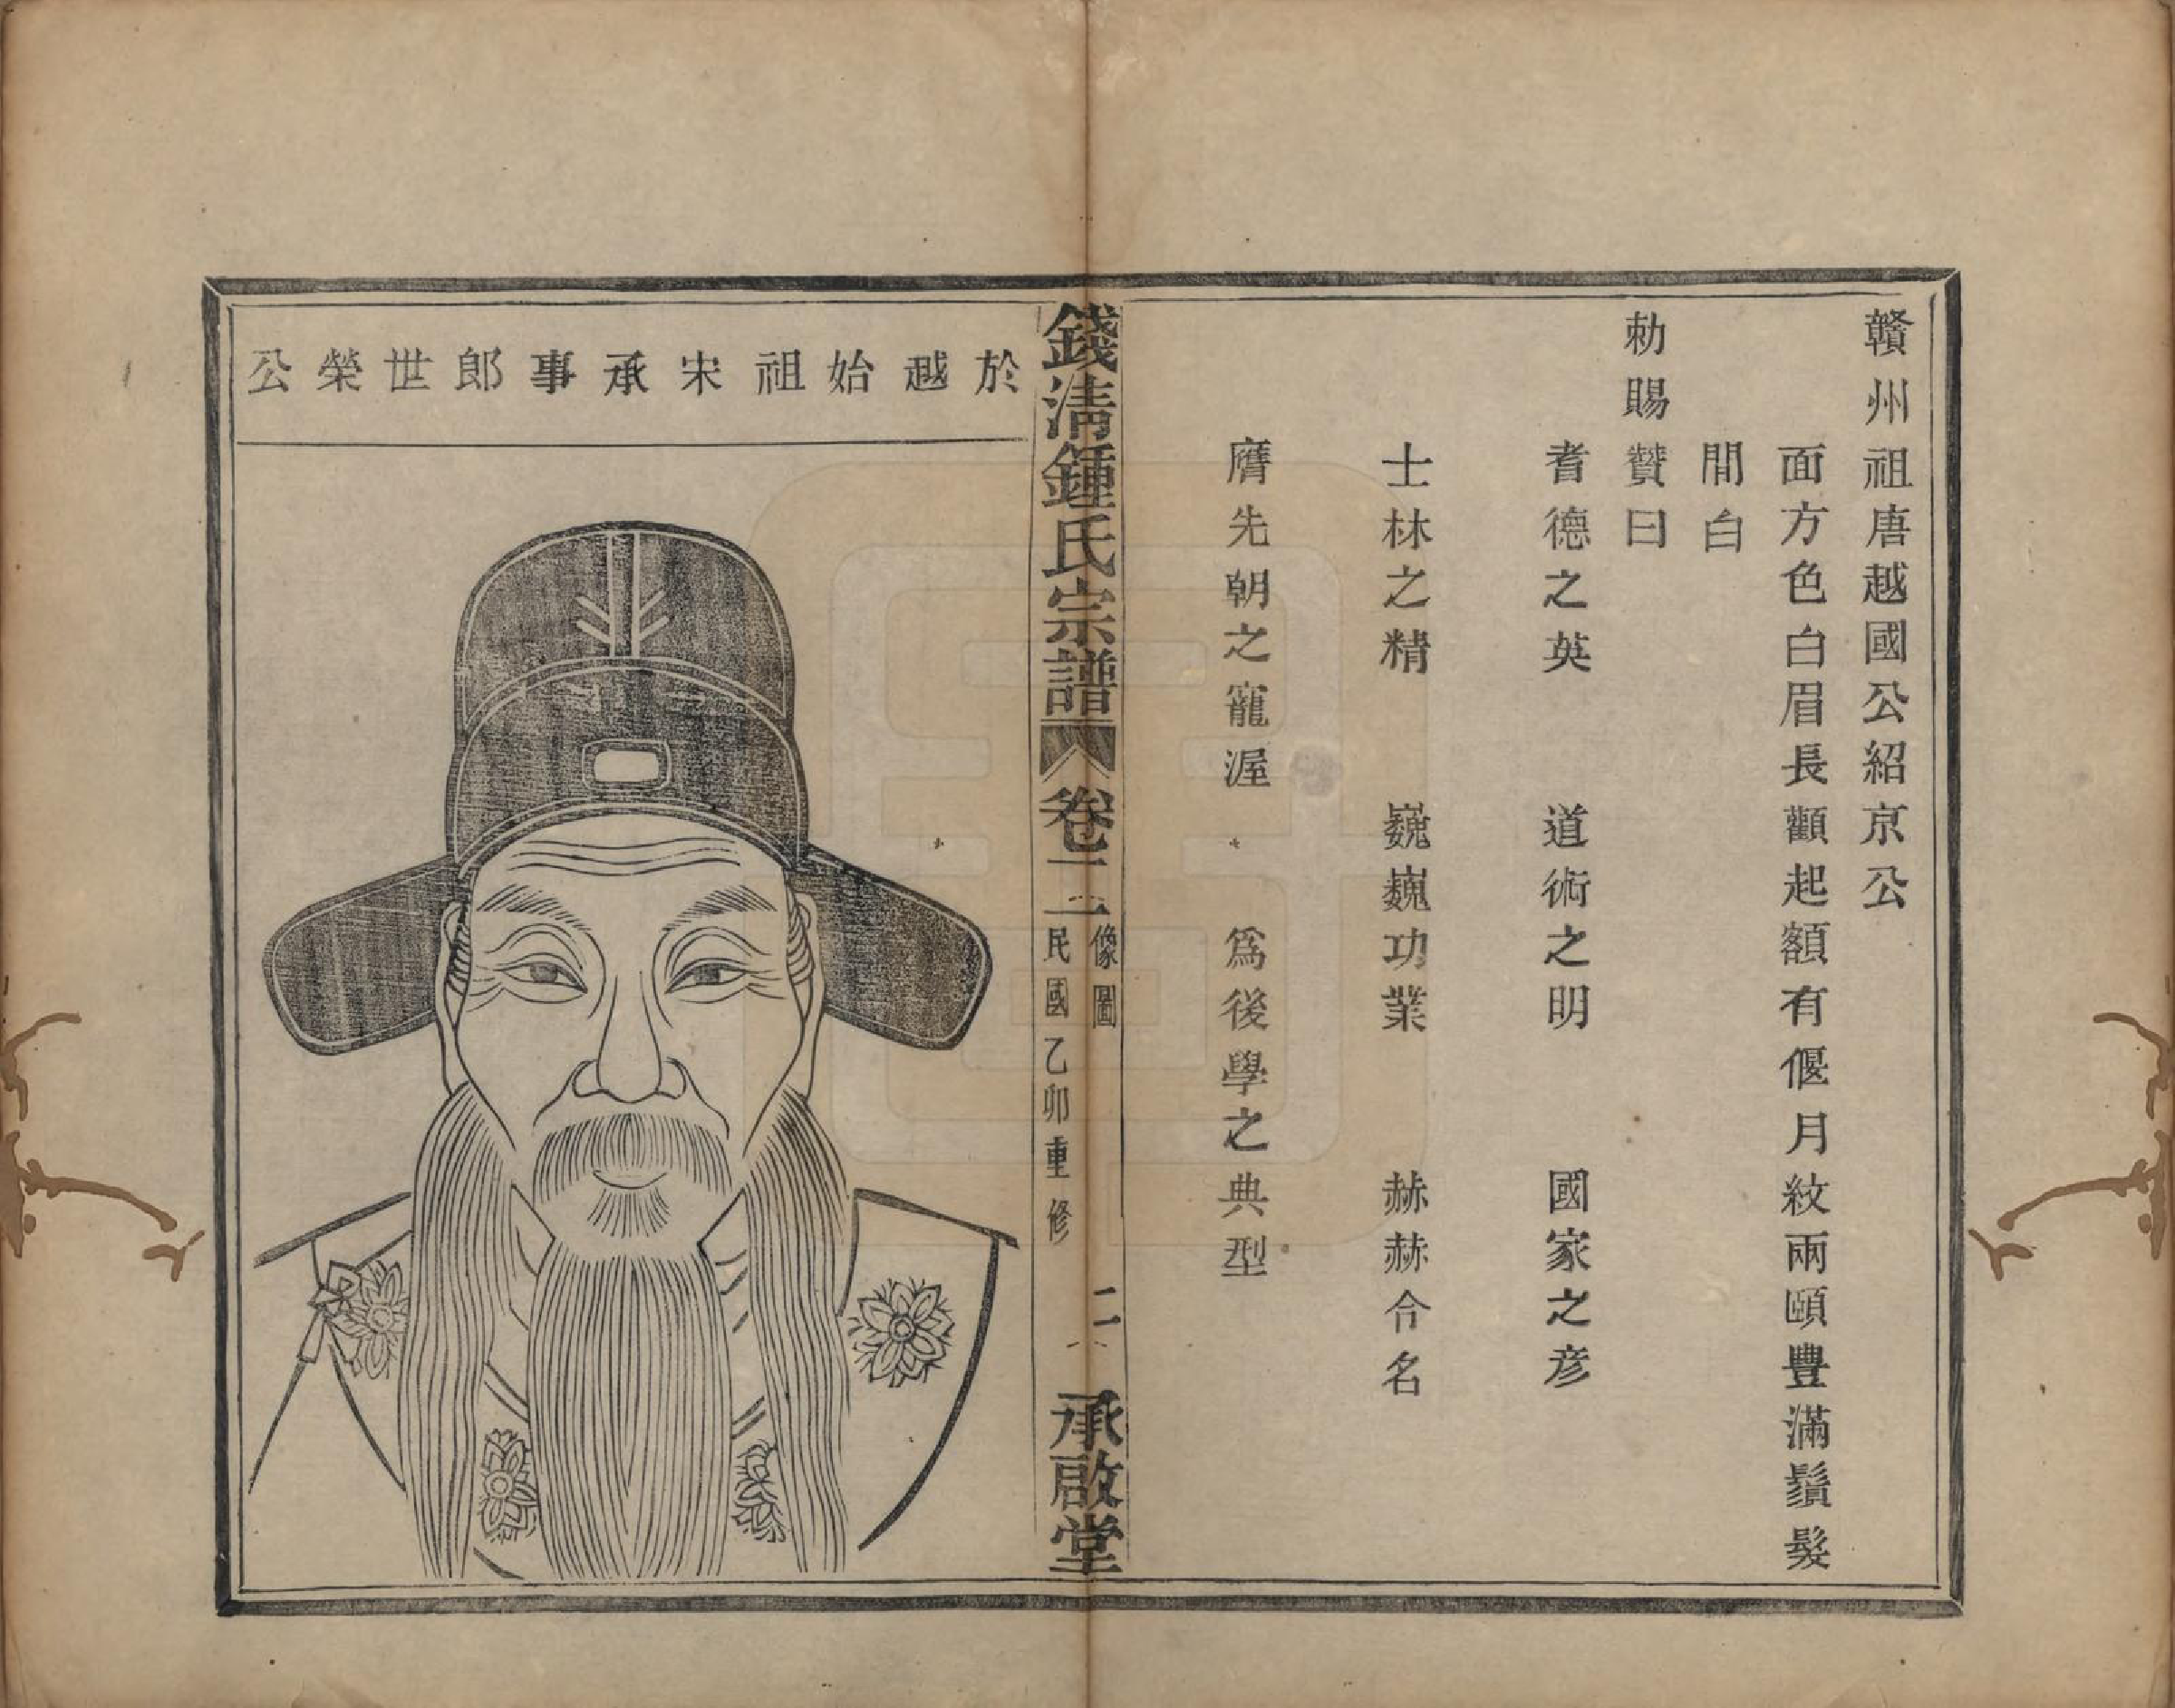 贛州祖唐越國公紹京公
面方色白眉長顴起額有偃月紋兩頤豐滿鬚髮
間白
勅賜贊曰
耆德之英 道術之明 國家之彦
士林之精 巍巍功業 赫赫令名
膺先朝之寵渥 爲後學之典型
錢淸鍾氏宗譜 卷二
像圖
民國乙卯重修
二
承啟堂
於越始祖宋承事郎世榮公